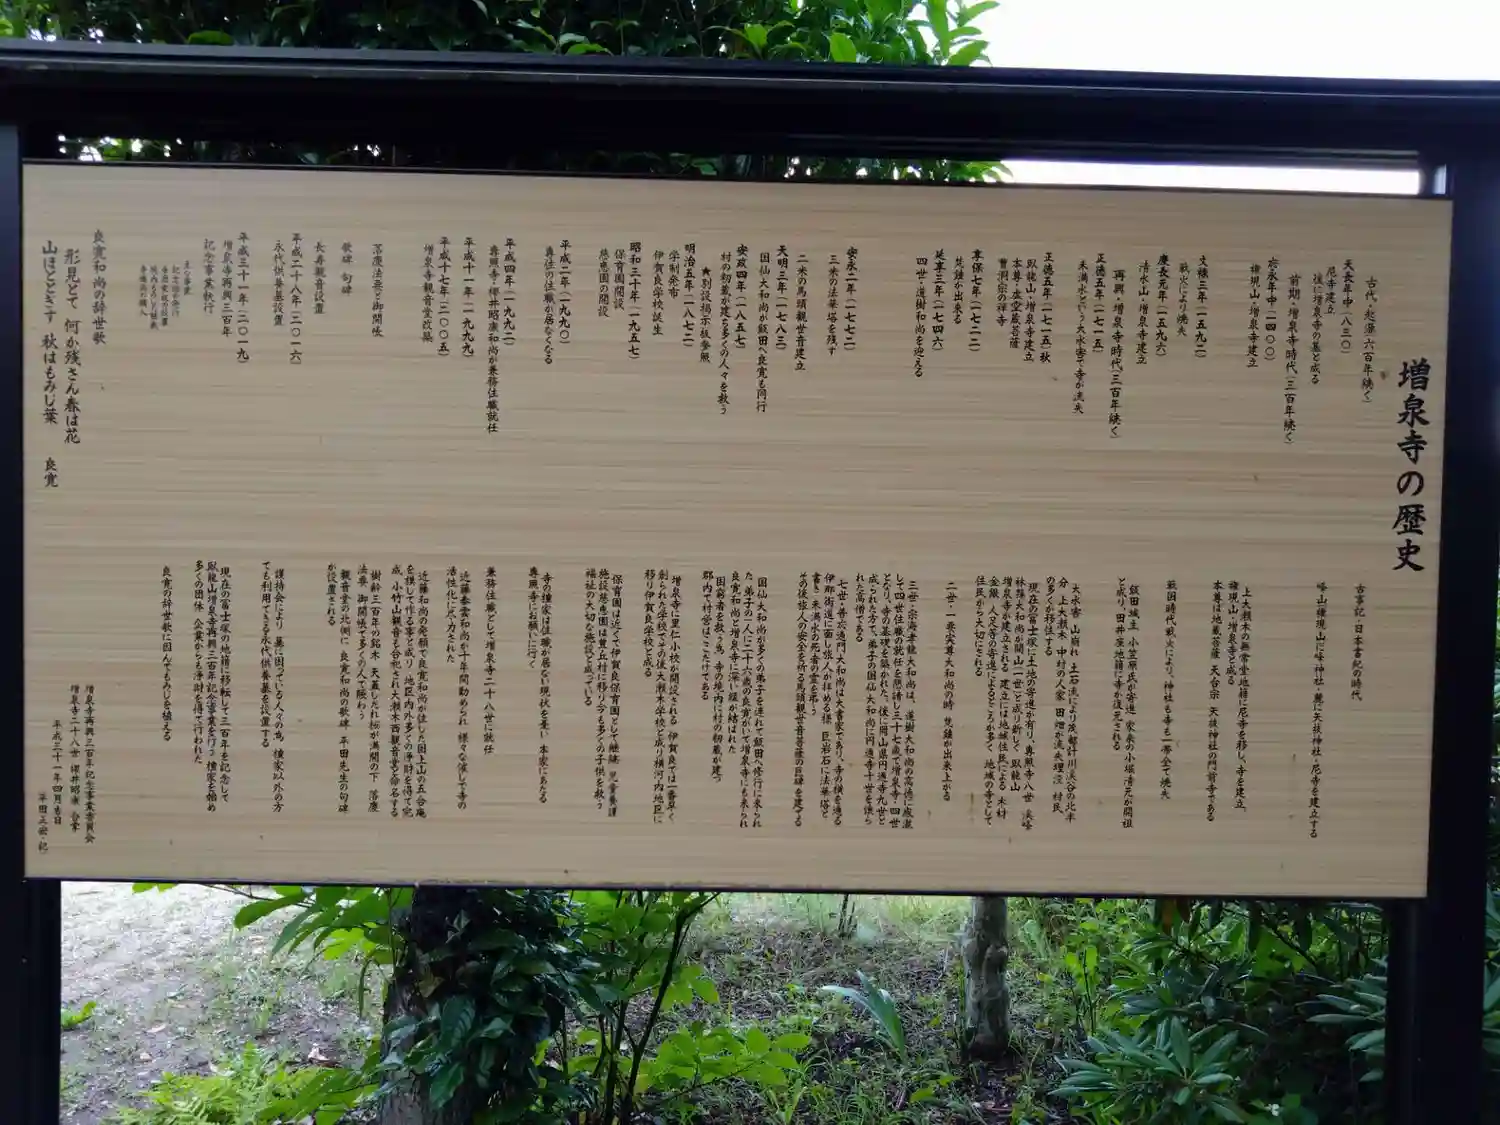 増泉寺の歴史
古代・起源(六百年続く)
天長年中(八三〇)
尼寺建立
後に増泉寺の基と成る
前期・増泉寺時代(三百年続く)
応永年中(一四〇〇)
権現山・増泉寺建立
文禄三年(一五九二)
戦火により焼失
慶長元年(一五九六)
清水山・増泉寺建立
再興・増泉寺時代(三百年続く)
正徳五年(一七一五)
未満水という大水害で寺が流失
正徳五年(一七一五)秋
臥龍山・増泉寺建立
本尊・虚空蔵菩薩
曹洞宗の禅寺
享保七年(一七二二)
梵鐘が出来る
延享三年(一七四六)
四世・道樹和尚を迎える
安永二年(一七七二)
三米の法華塔を残す
二米の馬頭観世音建立
天明三年(一七八三)
国仙大和尚が飯田へ良寛も同行
安政四年(一八五七)
村の籾蔵が建ち多くの人々を救う
★別設掲示板参照
明治五年(一八七二)
学制発布
伊賀良学校が誕生
昭和三十年(一九五七)
保育園開設
慈恵園の開設
平成二年(一九九〇)
専住の住職が居なくなる
平成四年(一九九二)
専照寺・櫻井昭康和尚が兼務住職就任
平成十一年(一九九九)
平成十七年(二〇〇五)
増泉寺観音堂改築
落慶法要と御開帳
歌碑 句碑
長寿観音設置
平成二十八年(二〇一六)
永代供養墓設置
平成三十一年(二〇一九)
増泉寺再興三百年
記念事業執行
主な事業
良寛和尚の辞世歌
形見とて 何か残さん春は花
山ほととぎす 秋はもみじ葉 良寛
古事記・日本書紀の時代
峰山(権現山)に峰神社・麓に矢抜神社・尼寺を建立する
上大瀬木の無常堂地籍に尼寺を移し、寺を建立、
権現山・増泉寺と成る
本尊は地蔵菩薩 天台宗 矢抜神社の門前寺である
戦国時代戦火により、神社も寺も一帯全て焼失
飯田城主 小笠原氏が寄進 家来の小堀清元が開祖
と成り・田井座地籍に寺が復元される
大水害 山崩れ 土石流により茂都計川渓谷の北半
分・上大瀬木 中村の人家 田畑が流失埋没 村民
の多くが移住する
現在の富士塚に土地の寄進が有り、専照寺八世 渓峰
林薩大和尚が開山(一世)と成り新しく 臥龍山
増泉寺が建立される 建立には地域住民による 木材
金銀 人足等の寄進によるところが多く 地域の寺として
住民から大切にされる
二世・一要実尊大和尚の時 梵鐘が出来上がる
三世・宗海孝龍大和尚は、道樹大和尚の高徳に感激
して四世住職の就任を懇請し三十七歳で増泉寺・四世
となり、寺の基礎を築かれた。後に岡山県円通寺九世と
成られた方で、弟子の国仙大和尚に円通寺十世を譲ら
れた高僧である
七世・普応透門大和尚は大書家であり、寺の横を通る
伊那街道に面し旅人が拝める様 巨岩石に法華塔と
書き 未満水の死者の霊を弔う
その後旅人の安全を祈る馬頭観世音菩薩の巨碑を建てる
国仙大和尚が多くの弟子を連れて飯田へ修行に来られ
た 弟子の一人に二十六歳の良寛がいて増泉寺にも来られ
良寛和尚と増泉寺に深い縁が結ばれた
困窮者を救う為 寺の境内に村の籾蔵が建つ
郡内で村営はここだけである
増泉寺に里仁小校が開設される 伊賀良では一番早く
創られた学校でその後大瀬木学校と成り横河内地区に
移り伊賀良学校と成る
保育園は近くで伊賀良保育園として継続 児童養護
施設慈恵園は豊丘村に移り今も多くの子供を救う
福祉の大切な施設と成っている
寺の檀家は住職が居ない現状を憂い 本家にあたる
専照寺にお願いに行く
兼務住職として増泉寺二十八世に就任
近藤泰雲和尚が十年間勤められ 様々な催しで寺の
活性化に尽力された
近藤和尚の発願で良寛和尚が住した国上山の五合庵
を模して作る事と成り 地区内外多くの浄財を得て完
成 小竹山観音を合祀され大瀬木西観音堂と命名する
樹齢三百年の銘木 天蓋しだれ桜が満開の下 落慶
法要 御開帳で多くの人で賑わう
観音堂の北側に 良寛和尚の歌碑 平田先生の句碑
が設置される
護持会により 墓に困っている人々の為 檀家以外の方
でも利用できる永代供養墓を設置する
現在の富士塚の地籍に移転して三百年を記念して
臥龍山増泉寺再興三百年記念事業を行う 檀家を始め
多くの団体 企業からも浄財を得て行われた
良寛の辞世歌に因んでもみじを植える
増泉寺再興三百年記念事業委員会
増泉寺二十八世 櫻井昭康 合掌
平成三十一年四月吉日